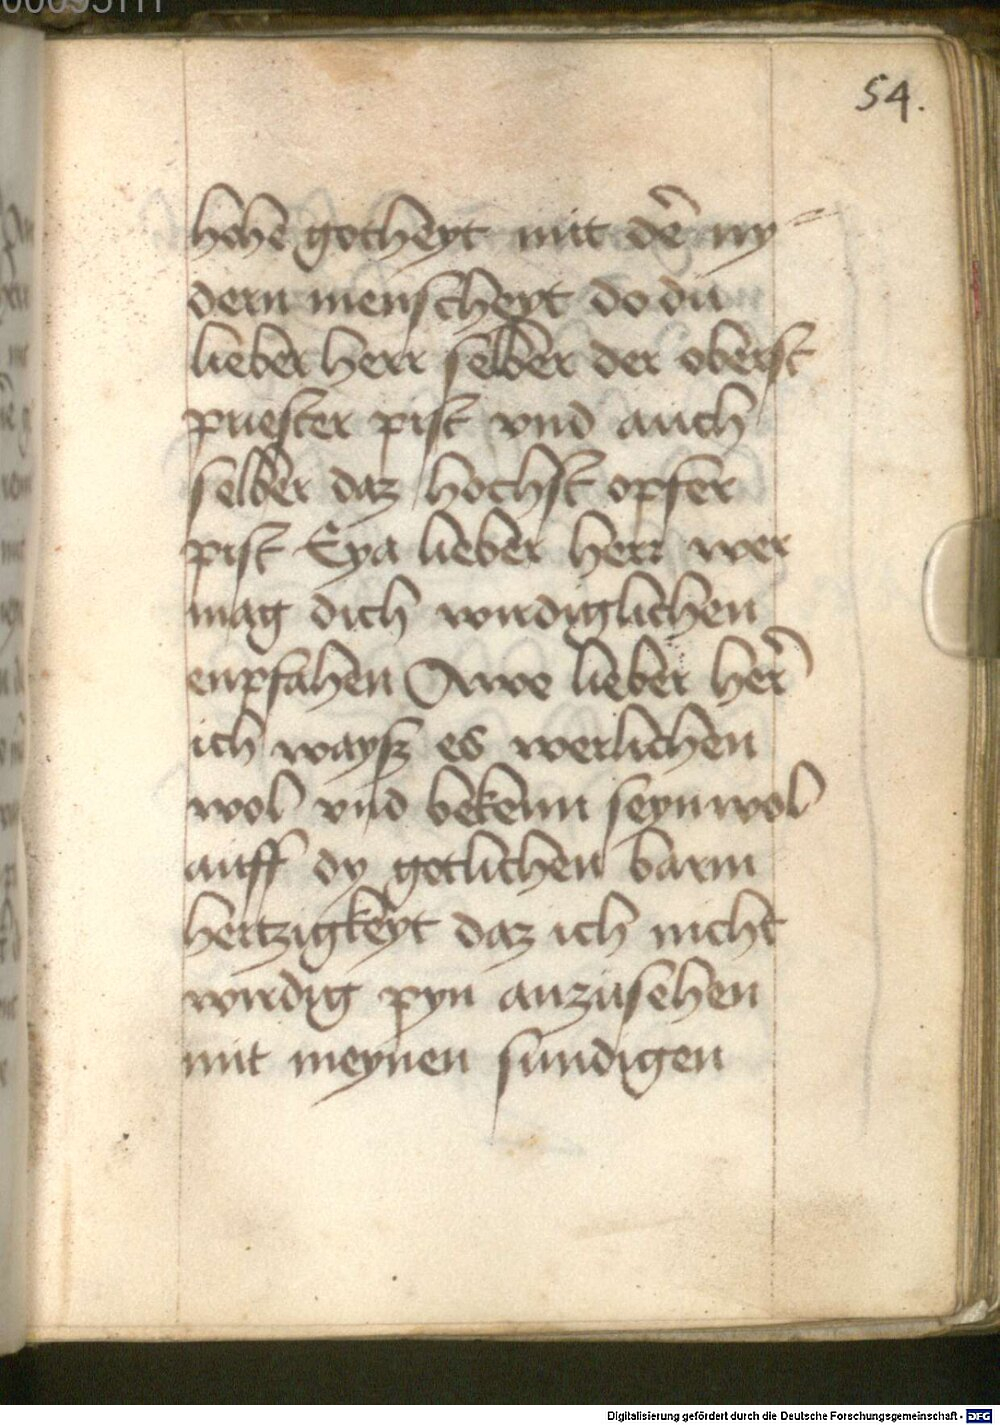 54.
hohe gotheyt mit der̄ ny=
dern menscheyt do du
lieber herr selber der oberst
priester pist vnd auch
selber daz hochst opfer
pist Eya lieber herr wer
mag dich wirdiglichen
enpfahen Owe lieber her̄
ich waysz es werlichen
wol vnd bekenn seyn wol
auff dy gotlichen barm
hertzigkeyt daz ich nicht
wirdig pyn anzusehen
mit meynen sundigen
Digitalisierung gefördert durch die Deutsche Forschungsgemeinschaft - DFG